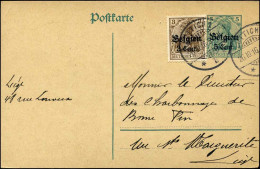 Postkarte
3
Belgien
3 Cent.
5
Belgien
5 Cent.
Liége
48 rue Louvrex
Monsieur le Directeur
des Charbonnages de
Bonne Fin
rue Ste Marguerite
Liége